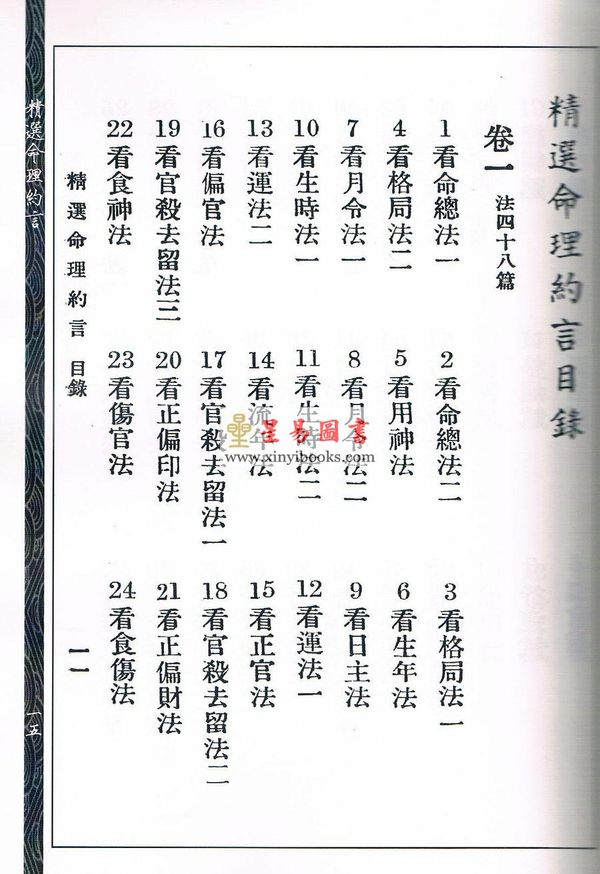 精選命理約言目錄
卷一 法四十八篇
1 看命總法一
2 看命總法二
3 看格局法一
4 看格局法二
5 看用神法
6 看生年法
7 看月令法一
8 看月令法二
9 看日主法
10 看生時法一
11 看生時法二
12 看運法一
13 看運法二
14 看流年法
15 看正官法
16 看偏官法
17 看官殺去留法一
18 看官殺去留法二
19 看官殺去留法三
20 看正偏印法
21 看正偏財法
22 看食神法
23 看傷官法
24 看食傷法
精選命理約言 目錄
一一
精選命理約言
一五
星易圖書
www.xinyibooks.com